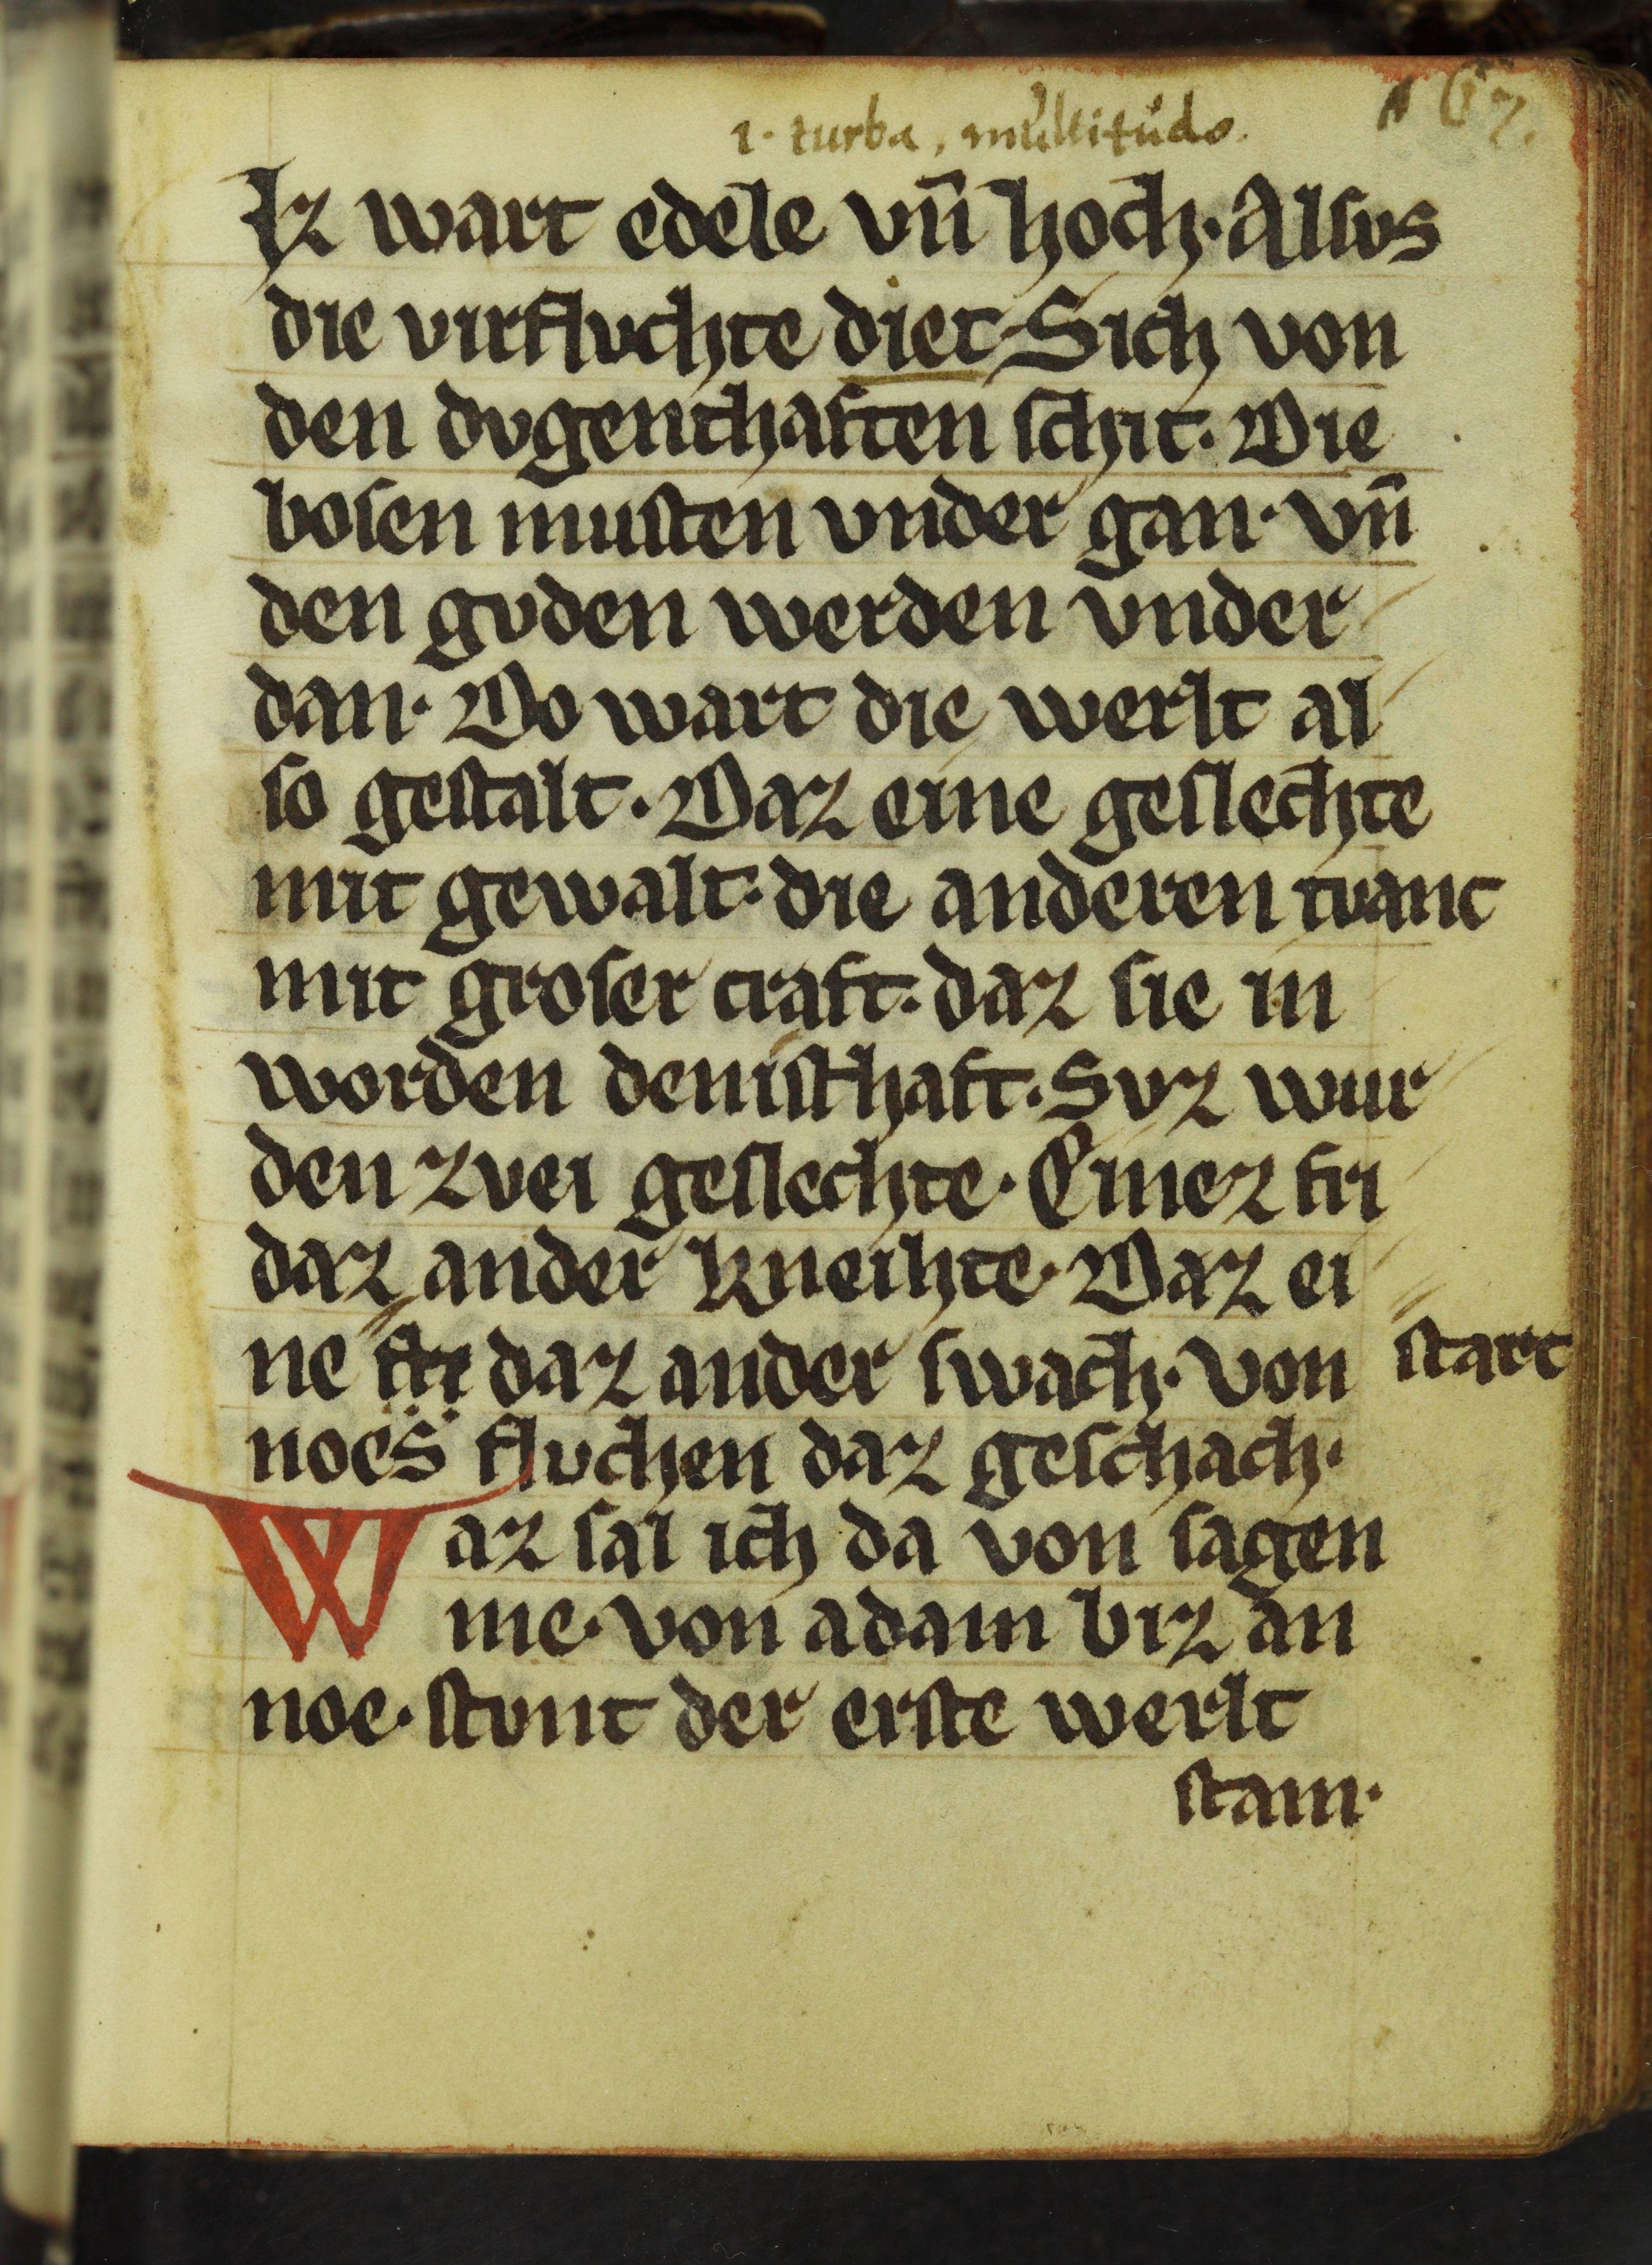 i. turba, multitudo.
67.
Iz wart edele vn̄ hoch. Alsvs
die virflvchte diet Sich von
den dvgenthaften schit. Die
bosen musten vnder gan. vn̄
den gvden werden vnder
dan. Do wart die werlt al
so gestalt. Daz eine geslechte
mit gewalt. die anderen tvanc
mit groser craft. daz sie in
worden denisthaft. Svz wur
den zvei geslechte. Einez fri
daz ander kneihte. Daz ei
ne fri daz ander swach. von start
noes flvchen daz geschach.
Waz sal ich da von sagen
me. von adam biz an
noe. stvnt der erste werlt
stam.